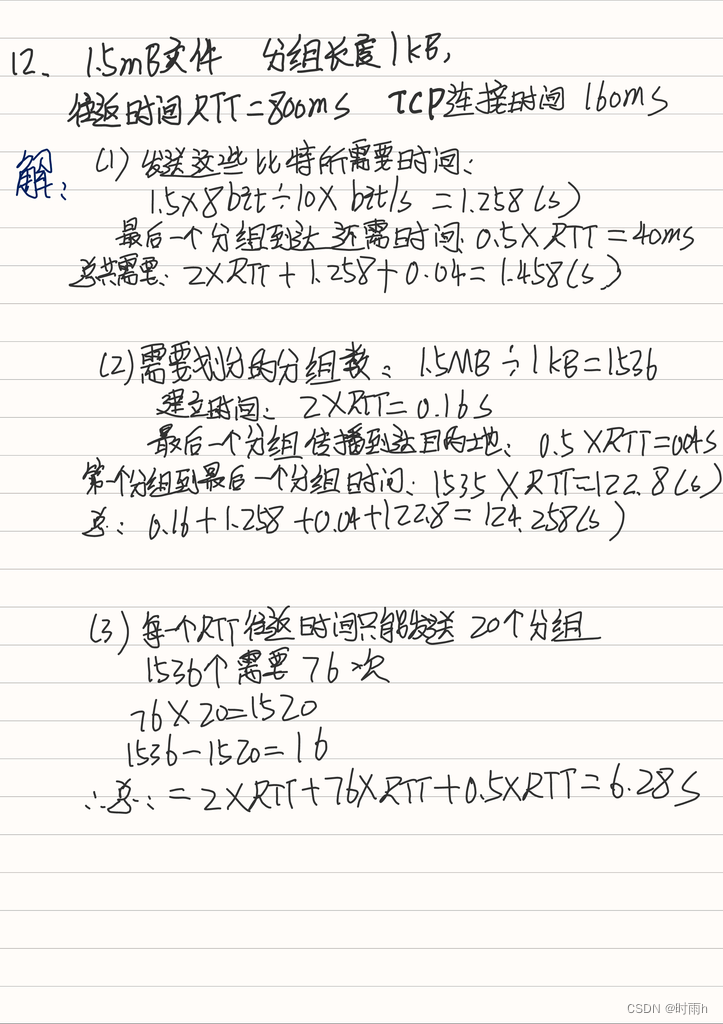 12、 1.5mB文件 分组长度1kB,
往返时间RTT=800ms TCP连接时间 160ms
解: (1) 发送这些比特所需要时间:
1.5×8bit÷10× bit/s =1.258(s)
最后一个分组到达还需时间: 0.5×RTT=40ms
总共需要: 2×RTT+1.258+0.04=1.458(s)
(2)需要划分的分组数: 1.5MB÷1kB=1536
建立时间: 2×RTT=0.16s
最后一个分组传播到达目的地: 0.5×RTT=0.04s
第一个分组到最后一个分组时间: 1535×RTT=122.8(s)
总: 0.16+1.258+0.04+122.8=124.258(s)
(3) 每一个RTT往返时间只能发送20个分组
1536个需要76次
76×20=1520
1536-1520=16
∴总: =2×RTT+76×RTT+0.5×RTT=6.28s
CSDN @时雨h